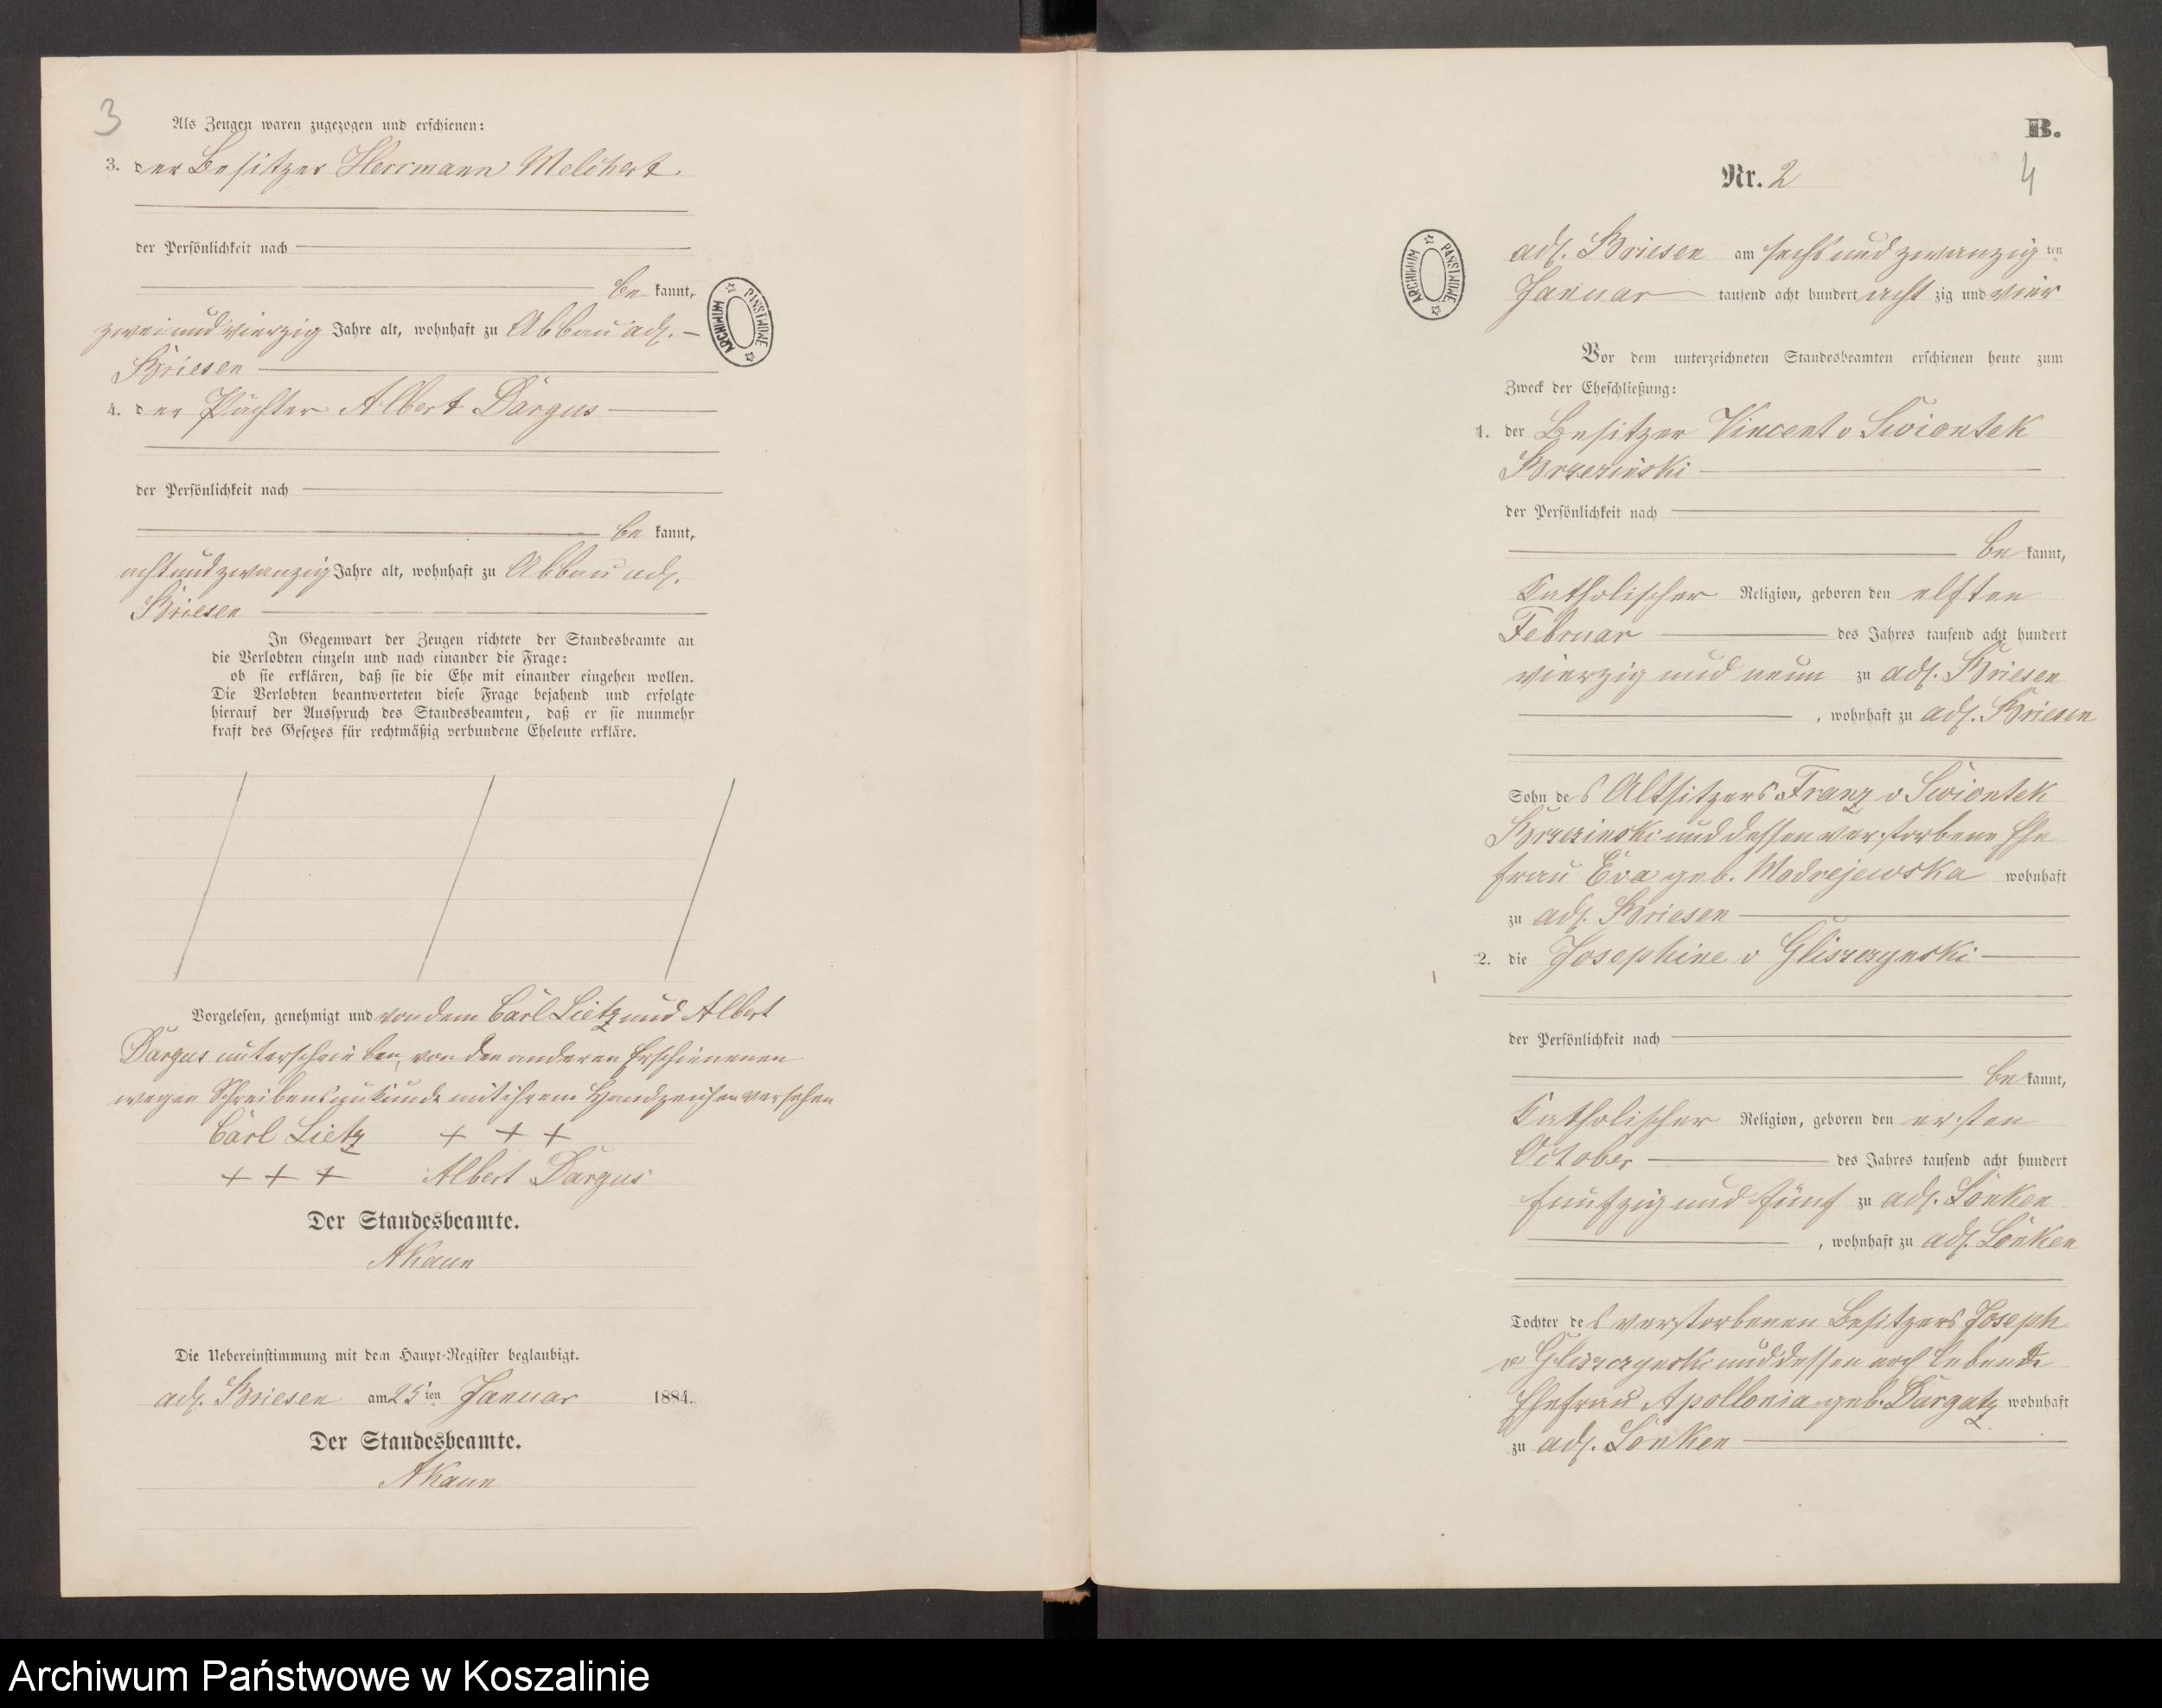 3
Als Zeugen waren zugezogen und erschienen:
3. der Besitzer Herrmann Melchert.
der Persönlichkeit nach
be kannt,
zweiundvierzig Jahre alt, wohnhaft zu Abbau adl.
Briesen
4. der Pächter Albert Dargus
der Persönlichkeit nach
be kannt,
achtundzwanzig Jahre alt, wohnhaft zu Abbau adl.
Briesen
In Gegenwart der Zeugen richtete der Standesbeamte an
die Verlobten einzeln und nach einander die Frage:
ob sie erklären, daß sie die Ehe mit einander eingehen wollen.
Die Verlobten beantworteten diese Frage bejahend und erfolgte
hierauf der Ausspruch des Standesbeamten, daß er sie nunmehr
kraft des Gesetzes für rechtmäßig verbundene Eheleute erkläre.
Vorgelesen, genehmigt und von dem Carl Lietz und Albert
Dargus unterschrieben, von den anderen Erschienenen
wegen Schreibensunkunde mit ihrem Handzeichen versehen
Carl Lietz + + +
+ + + Albert Dargus
Der Standesbeamte.
AKaun
Die Uebereinstimmung mit dem Haupt-Register beglaubigt.
adl. Briesen am 25ten Januar 1884.
Der Standesbeamte.
AKaun
ARCHIWUM PAŃSTWOWE
B.
Nr. 2
4
ARCHIWUM PAŃSTWOWE
adl. Briesen am sechsundzwanzig ten
Januar tausend acht hundert acht zig und vier
Vor dem unterzeichneten Standesbeamten erschienen heute zum
Zweck der Eheschließung:
1. der Besitzer Vincent v Swiontek
Brzezinski
der Persönlichkeit nach
be kannt,
Katholischer Religion, geboren den elften
Februar des Jahres tausend acht hundert
vierzig und neun zu adl. Briesen
, wohnhaft zu adl. Briesen
Sohn des Altsitzers Franz v Swiontek
Brzezinski und dessen verstorbene Ehe
frau Eva geb. Modrejewska wohnhaft
zu adl. Briesen
2. die Josephine v Gliszczynski
der Persönlichkeit nach
be kannt,
Katholischer Religion, geboren den ersten
October des Jahres tausend acht hundert
funfzig und fünf zu adl. Lonken
, wohnhaft zu adl. Lonken
Tochter des verstorbenen Besitzers Joseph
v Gliszczynski und dessen noch lebende
Ehefrau Apollonia geb. Dargatz wohnhaft
zu adl. Lonken
Archiwum Państwowe w Koszalinie